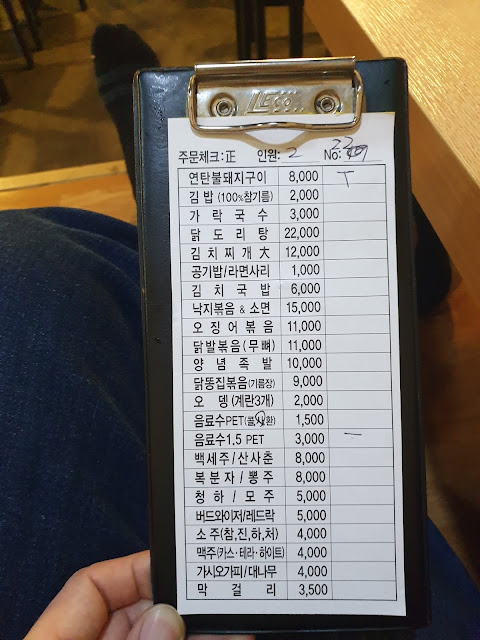 주문체크:正 인원: 2 No: 23
연탄불돼지구이 8,000 T
김밥 (100%참기름) 2,000
가락국수 3,000
닭도리탕 22,000
김치찌개 大 12,000
공기밥/라면사리 1,000
김치국밥 6,000
낙지볶음 & 소면 15,000
오징어볶음 11,000
닭발볶음(무뼈) 11,000
양념족발 10,000
닭똥집볶음(기름장) 9,000
오뎅(계란3개) 2,000
음료수PET(콜,사,환) 1,500
음료수1.5 PET 3,000 一
백세주/산사춘 8,000
복분자/뽕주 8,000
청하/모주 5,000
버드와이저/레드락 5,000
소주(참,진,하,처) 4,000
맥주(카스·테라·하이트) 4,000
가시오가피/대나무 4,000
막걸리 3,500